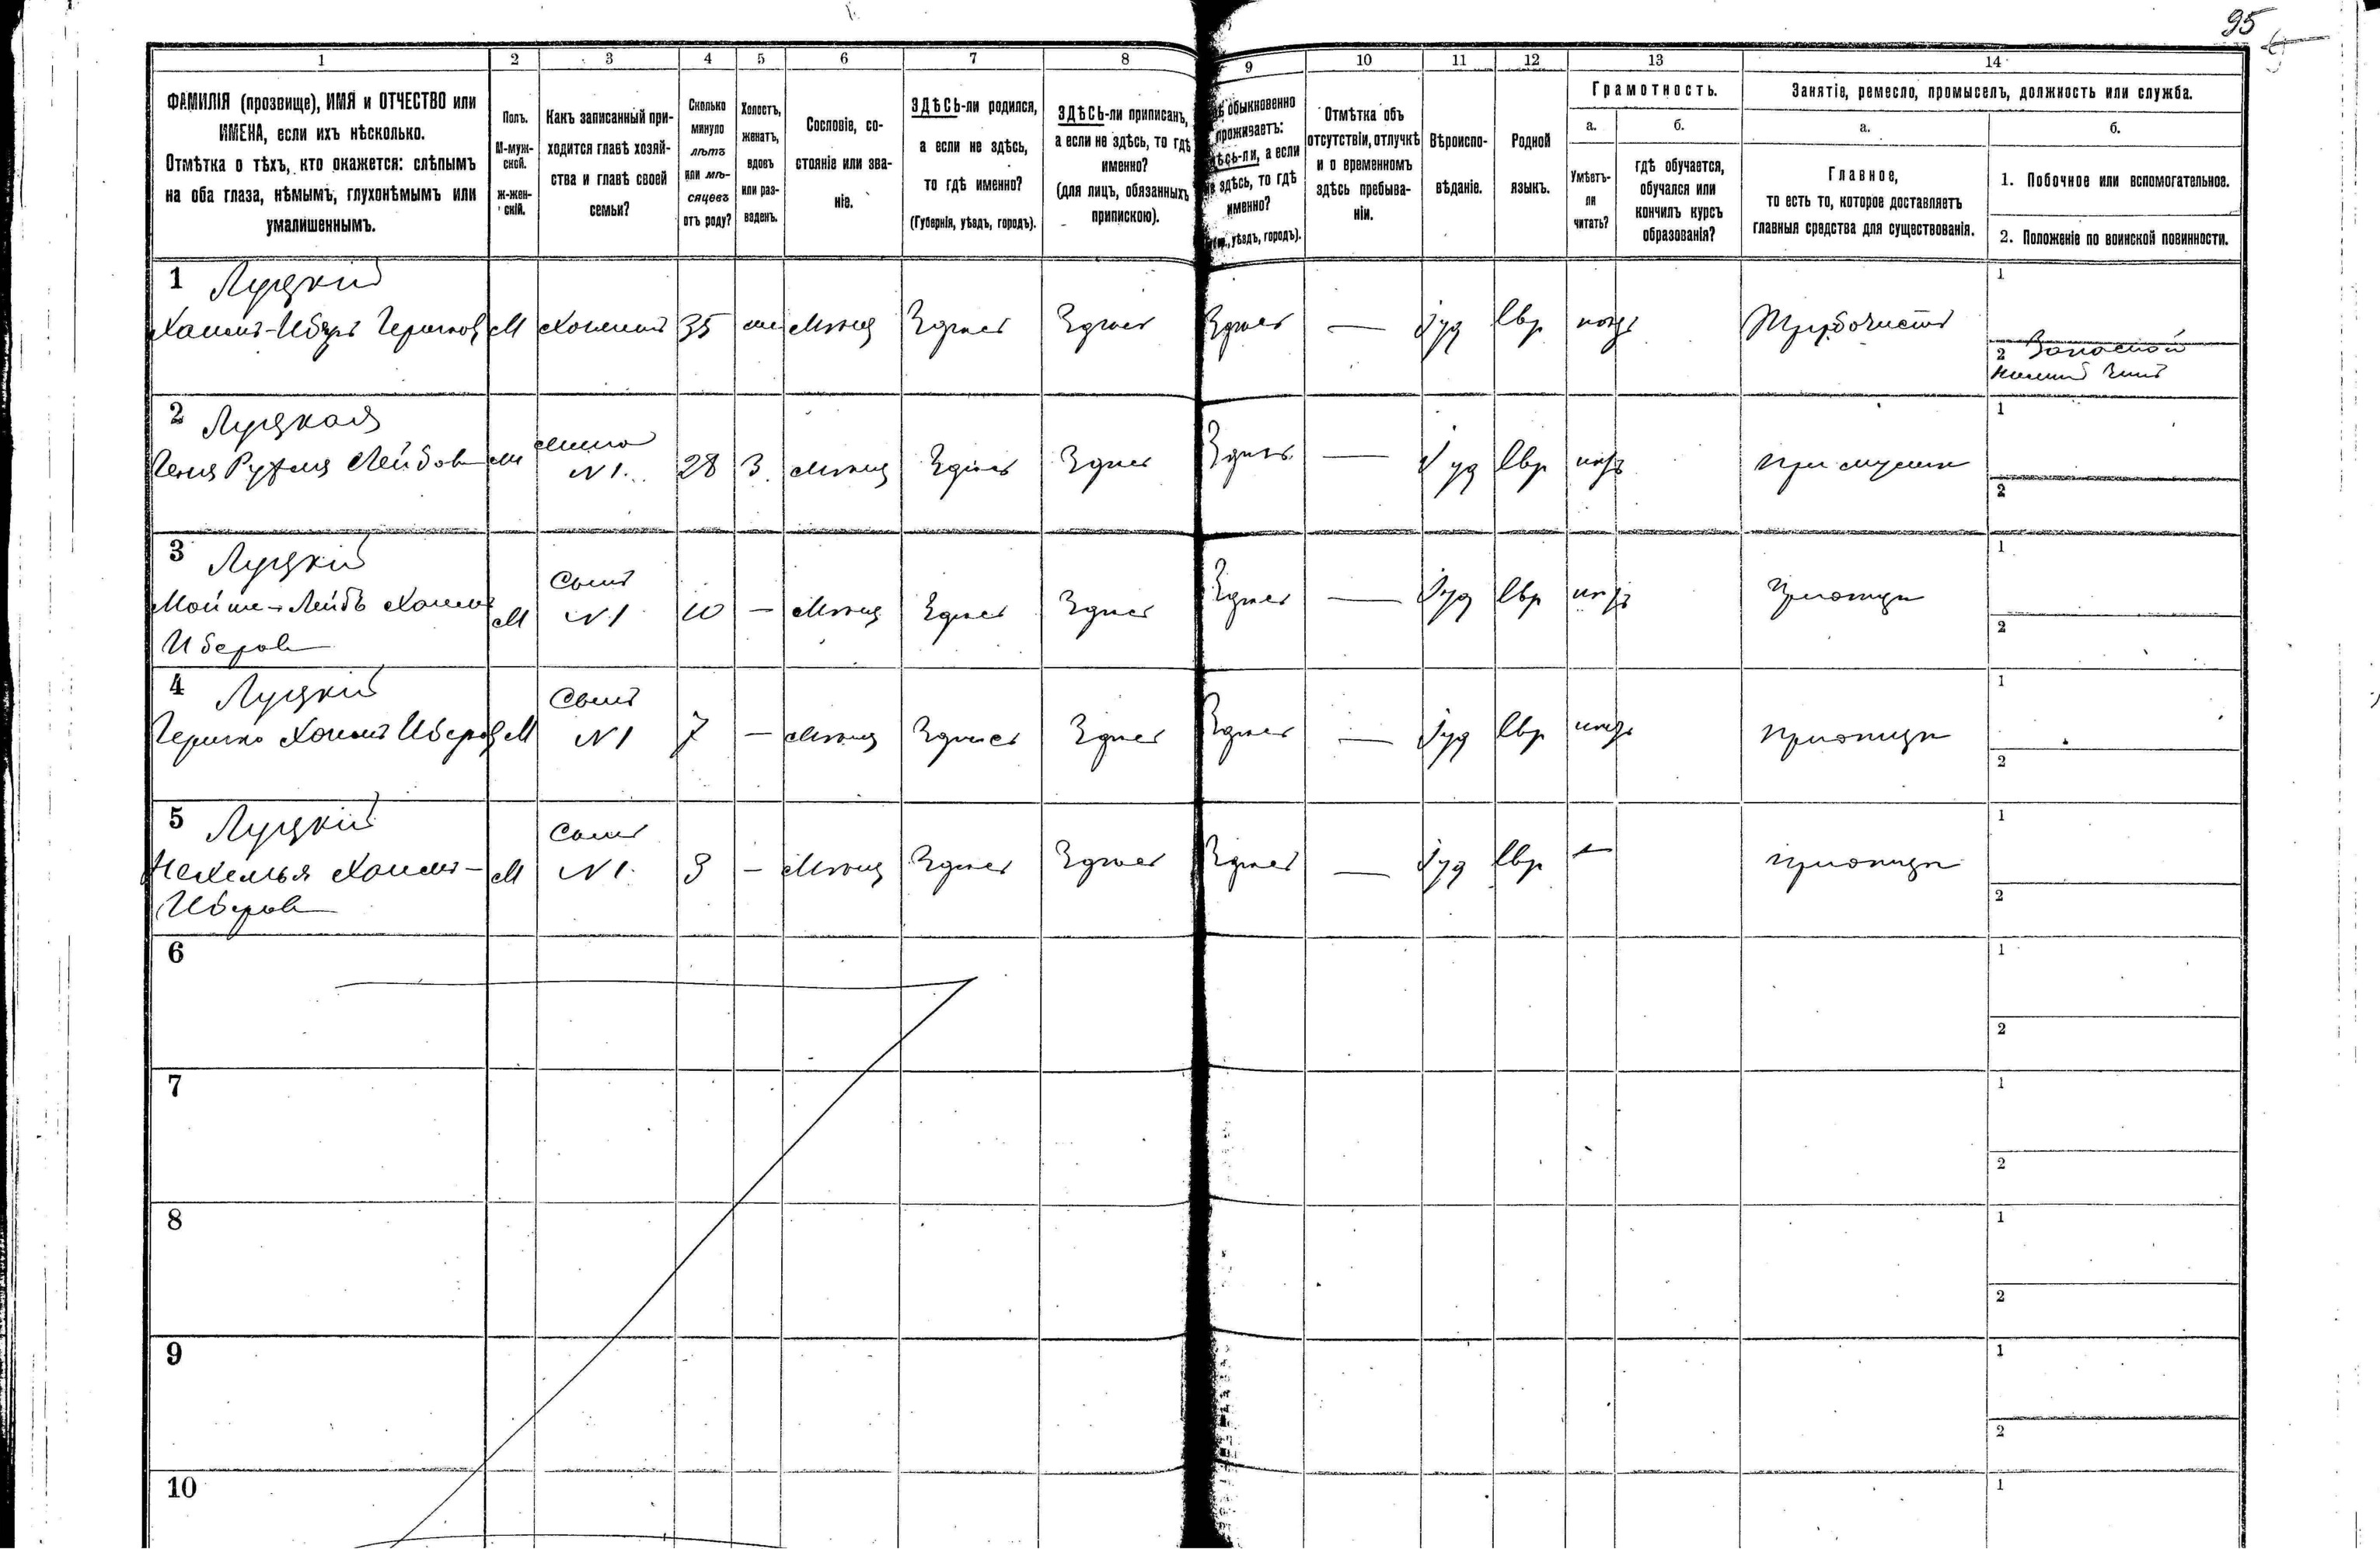 95
1 2 3 4 5 6 7 8 9 10 11 12 13 14
ФАМИЛІЯ (прозвище), ИМЯ и ОТЧЕСТВО или
ИМЕНА, если ихъ нѣсколько.
Отмѣтка о тѣхъ, кто окажется: слѣпымъ
на оба глаза, нѣмымъ, глухонѣмымъ или
умалишеннымъ.
Полъ.
М-муж-
ской.
ж-жен-
скій.
Какъ записанный при-
ходится главѣ хозяй-
ства и главѣ своей
семьи?
Сколько
минуло
лѣтъ
или мѣ-
сяцевъ
отъ роду?
Холостъ,
женатъ,
вдовъ
или раз-
веденъ.
Сословіе, со-
стояніе или зва-
ніе.
ЗДѢСЬ-ли родился,
а если не здѣсь,
то гдѣ именно?
(Губернія, уѣздъ, городъ).
ЗДѢСЬ-ли приписанъ,
а если не здѣсь, то гдѣ
именно?
(для лицъ, обязанныхъ
припискою).
обыкновенно
проживаетъ:
а если
здѣсь, то гдѣ
именно?
уѣздъ, городъ).
Отмѣтка объ
отсутствіи, отлучкѣ
и о временномъ
здѣсь пребыва-
ніи.
Вѣроиспо-
вѣданіе.
Родной
языкъ.
Грамотность.
а.
Умѣетъ-
ли
читать?
б.
гдѣ обучается,
обучался или
кончилъ курсъ
образованія?
Занятіе, ремесло, промыселъ, должность или служба.
а.
Главное,
то есть то, которое доставляетъ
главныя средства для существованія.
б.
1. Побочное или вспомогательное.
2. Положеніе по воинской повинности.
1 Луцкій
М 35 Здѣсь Здѣсь Здѣсь — Іуд Евр Трубочистъ
1
2
2 Луцкая
Лейбов
№ 1. 28 З Здѣсь Здѣсь Здѣсь — Іуд Евр при мужѣ
1
2
3 Луцкій
Мойше-Лейбъ Хаимъ
Иберов
М Сынъ
№ 1 10 — Здѣсь Здѣсь Здѣсь — Іуд Евр при отцѣ
1
2
4 Луцкій
Хаимъ Иберов М Сынъ
№ 1 7 — Здѣсь Здѣсь Здѣсь — Іуд Евр при отцѣ
1
2
5 Луцкій
Нехемья Хаимъ-
Иберов
М Сынъ
№ 1. 3 — Здѣсь Здѣсь Здѣсь — Іуд Евр — при отцѣ
1
2
6
1
2
7
1
2
8
1
2
9
1
2
10
1